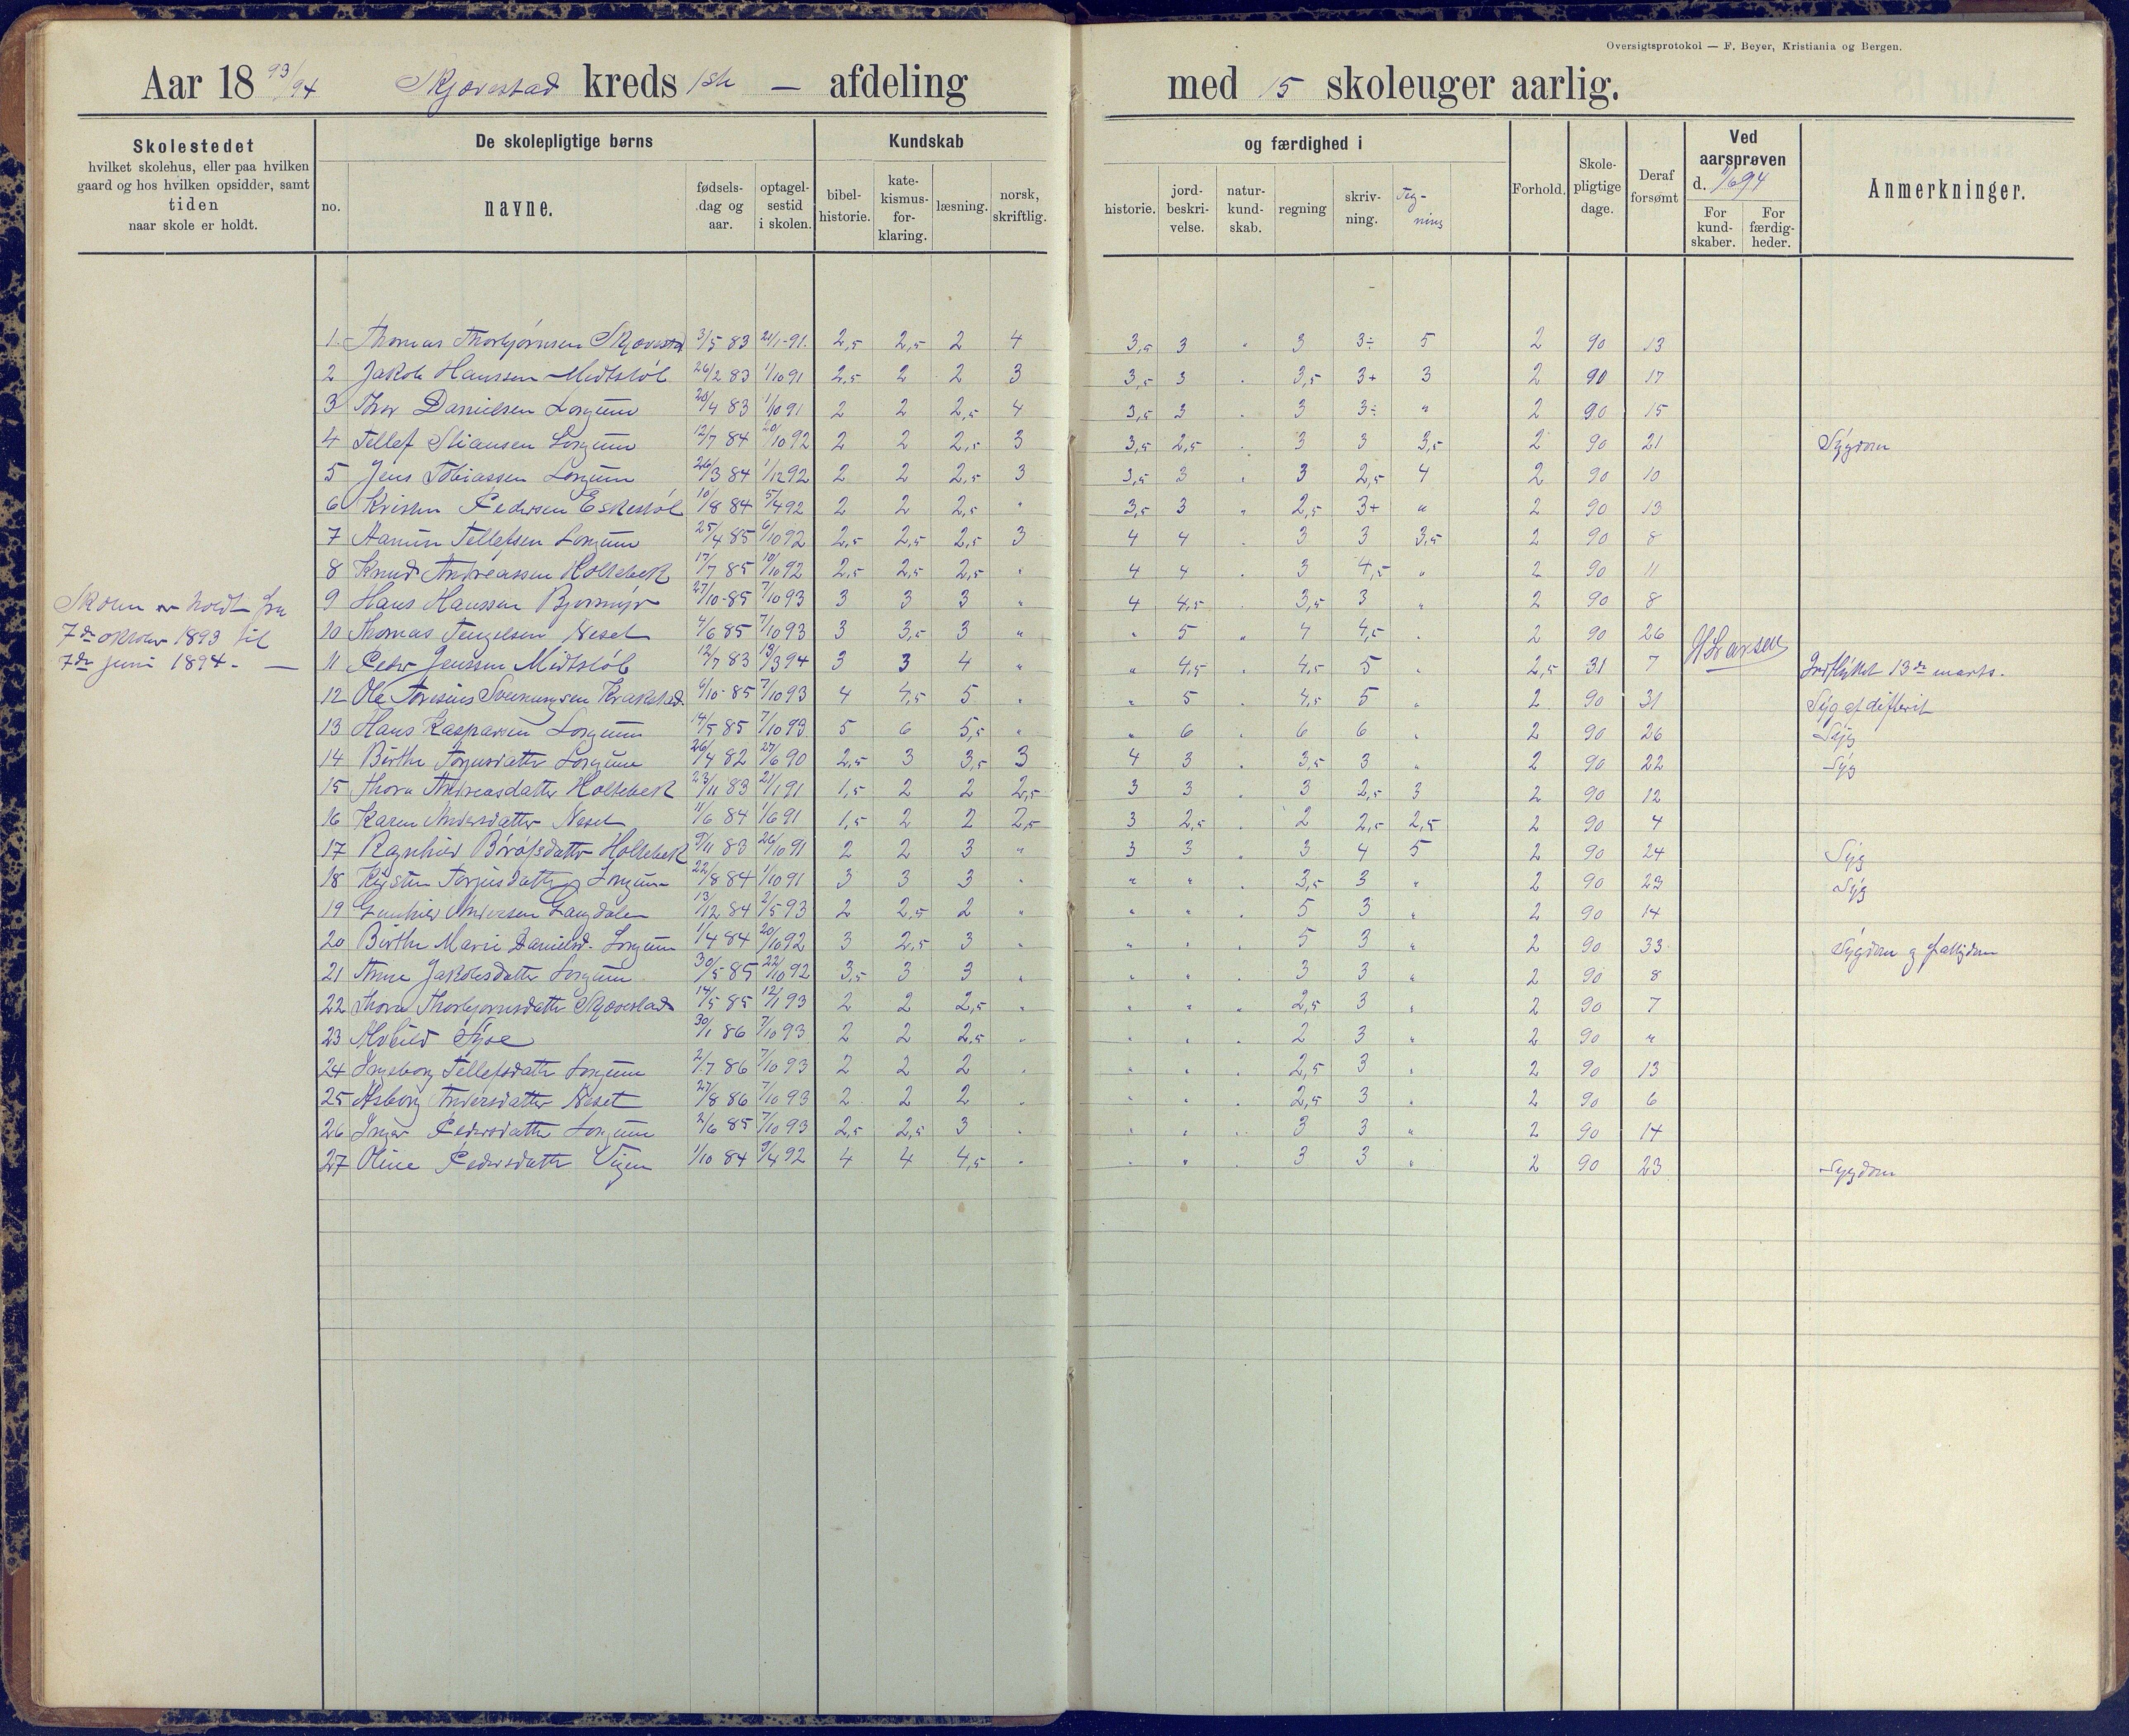 Oversigtsprotokol — F. Beyer, Kristiania og Bergen.
Aar 18 93/94 Skjævestad kreds 1ste — afdeling med 15 skoleuger aarlig.
Skolestedet
hvilket skolehus, eller paa hvilken
gaard og hos hvilken opsidder, samt
tiden
naar skole er holdt.
De skolepligtige børns
no. navne. fødsels-dag og aar. optagel-sestid i skolen.
Kundskab og færdighed i
bibel-historie. kate-kismus-for-klaring. læsning. norsk, skriftlig. historie. jord-beskri-velse. natur-kund-skab. regning skriv-ning. Teg-ning
Forhold. Skole-pligtige dage. Deraf forsømt
Ved aarsprøven d. 7/6 94
For kund-skaber. For færdig-heder.
Anmerkninger.
Skolen er holdt fra
7de oktober 1893 til
7de juni 1894. —
1. Thomas Thorbjørnsen Skjævestad 3/5 83 21/1-91. 2,5 2,5 2 4 3,5 3 " 3 3÷ 5 2 90 13
2 Jakob Hanssen Midtstøl 26/2 83 1/10 91 2,5 2 2 3 3,5 3 " 3,5 3+ 3 2 90 17
3 Thor Danielsen Longum 20/4 83 1/10 91 2 2 2,5 4 3,5 3 " 3 3÷ " 2 90 15
4 Tellef Stiansen Longum 12/7 84 20/10 92 2 2 2,5 3 3,5 2,5 " 3 3 3,5 2 90 21 Sygdom
5 Jens Tobiassen Longum 26/3 84 1/12 92 2 2 2,5 3 3,5 3 " 3 2,5 4 2 90 10
6 Kristen Pedersen Eskestøl 10/8 84 5/4 92 2 2 2,5 " 3,5 3 " 2,5 3+ " 2 90 13
7 Aamun Tellefsen Longum 25/4 85 6/10 92 2,5 2,5 2,5 3 4 4 " 3 3 3,5 2 90 8
8 Knud Andreassen Holtebek 17/7 85 10/10 92 2,5 2,5 2,5 " 4 4 " 3 4,5 " 2 90 11
9 Hans Hanssen Bjormyr 27/10-85 7/10 93 3 3 3 " 4 4,5 " 3,5 3 " 2 90 8
10 Thomas Tengelsen Neset 4/6 85 7/10 93 3 3,5 3 " " 5 " 4 4,5 " 2 90 26
HLarsen
11 Peder Jenssen Midtstøl 12/7 83 13/3 94 3 3 4 " " 4,5 " 4,5 5 2,5 31 7 Indflyttet 13de marts.
12 Ole Toresius Svenungsen Krakstad 6/10-85 7/10 93 4 4,5 5 " " 5 " 4,5 5 " 2 90 31 Syg af difterit
13 Hans Kaspersen Longum 14/5 85 7/10 93 5 6 5,5 " " 6 " 6 6 " 2 90 26 Syg
14 Birthe Torjusdatter Longum 26/4 82 27/6 90 2,5 3 3,5 3 4 3 " 3,5 3 " 2 90 22 Syg
15 Thora Andreasdatter Holtebek 23/11 83 21/1 91 1,5 2 2 2,5 3 3 " 3 2,5 3 2 90 12
16 Karen Andersdatter Neset 11/6 84 1/6 91 1,5 2 2 2,5 3 2,5 " 2 2,5 2,5 2 90 4
17 Ragnhild Børufsdatter Holtebek 9/11 83 26/10 91 2 2 3 " 3 3 " 3 4 5 2 90 24 Syg
18 Kirsten Torjusdatter Longum 22/8 84 1/10 91 3 3 3 " " " 3,5 3 " 2 90 23 Syg
19 Gunhild Andersen Langdalen 13/12 84 2/5 93 2 2,5 2 " " " 5 3 " 2 90 14
20 Birthe Marie Danielsd. Longum 1/4 84 20/10 92 3 2,5 3 " " " 5 3 " 2 90 33 Sygdom og fattigdom
21 Anne Jakobsdatter Longum 30/5 85 22/10 92 3,5 3 3 " " " 3 3 " 2 90 8
22 Thora Thorbjørnsdatter Skjævestad 14/5 85 12/1 93 2 2 2,5 " " " " 2,5 3 " 2 90 7
23 Alvild Syse 30/1 86 7/10 93 2 2 2,5 " " " " 2 3 " 2 90 "
24 Ingeborg Tellefsdatter Longum 2/7 86 7/10 93 2 2 2 " " " " 2,5 3 " 2 90 13
25 Asborg Andersdatter Neset 27/8 86 7/10 93 2 2 2 " " " " 2,5 3 " 2 90 6
26 Inger Pedersdatter Longum 2/6 85 7/10 93 2,5 2,5 3 " " " " 3 3 " 2 90 14
27 Oline Pedersdatter Vigen 1/10 84 9/4 92 4 4 4,5 " " " 3 3 " 2 90 23 Sygdom